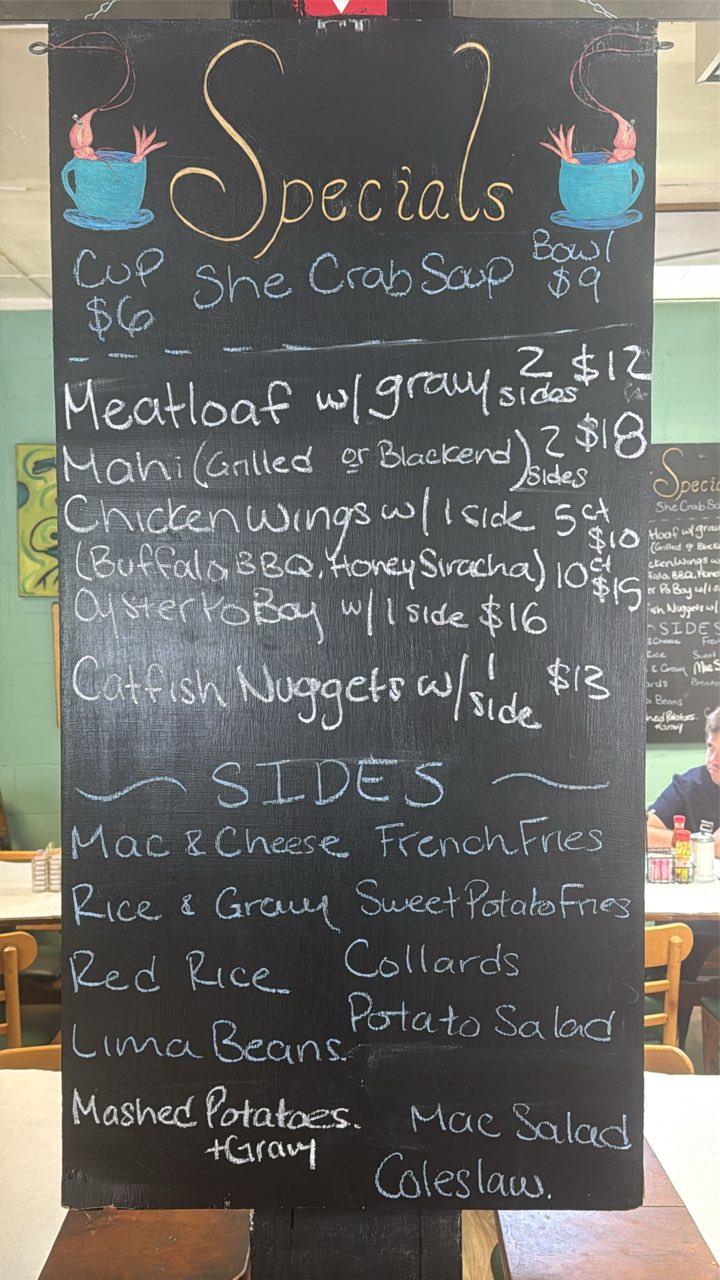 Specials
Cup She Crab Soup Bowl
$6 $9
Meatloaf w/ gravy 2 sides $12
Mahi (Grilled or Blackend) 2 sides $18
Chicken Wings w/ 1 side 5 ct $10
(Buffalo, BBQ, Honey Siracha) 10 ct $15
Oyster Po Boy w/ 1 side $16
Catfish Nuggets w/ 1 side $13
SIDES
Mac & Cheese French Fries
Rice & Gravy Sweet Potato Fries
Red Rice Collards
Lima Beans. Potato Salad
Mashed Potatoes. Mac Salad
+Gravy Coleslaw.
Specia
She Crab So
SIDES